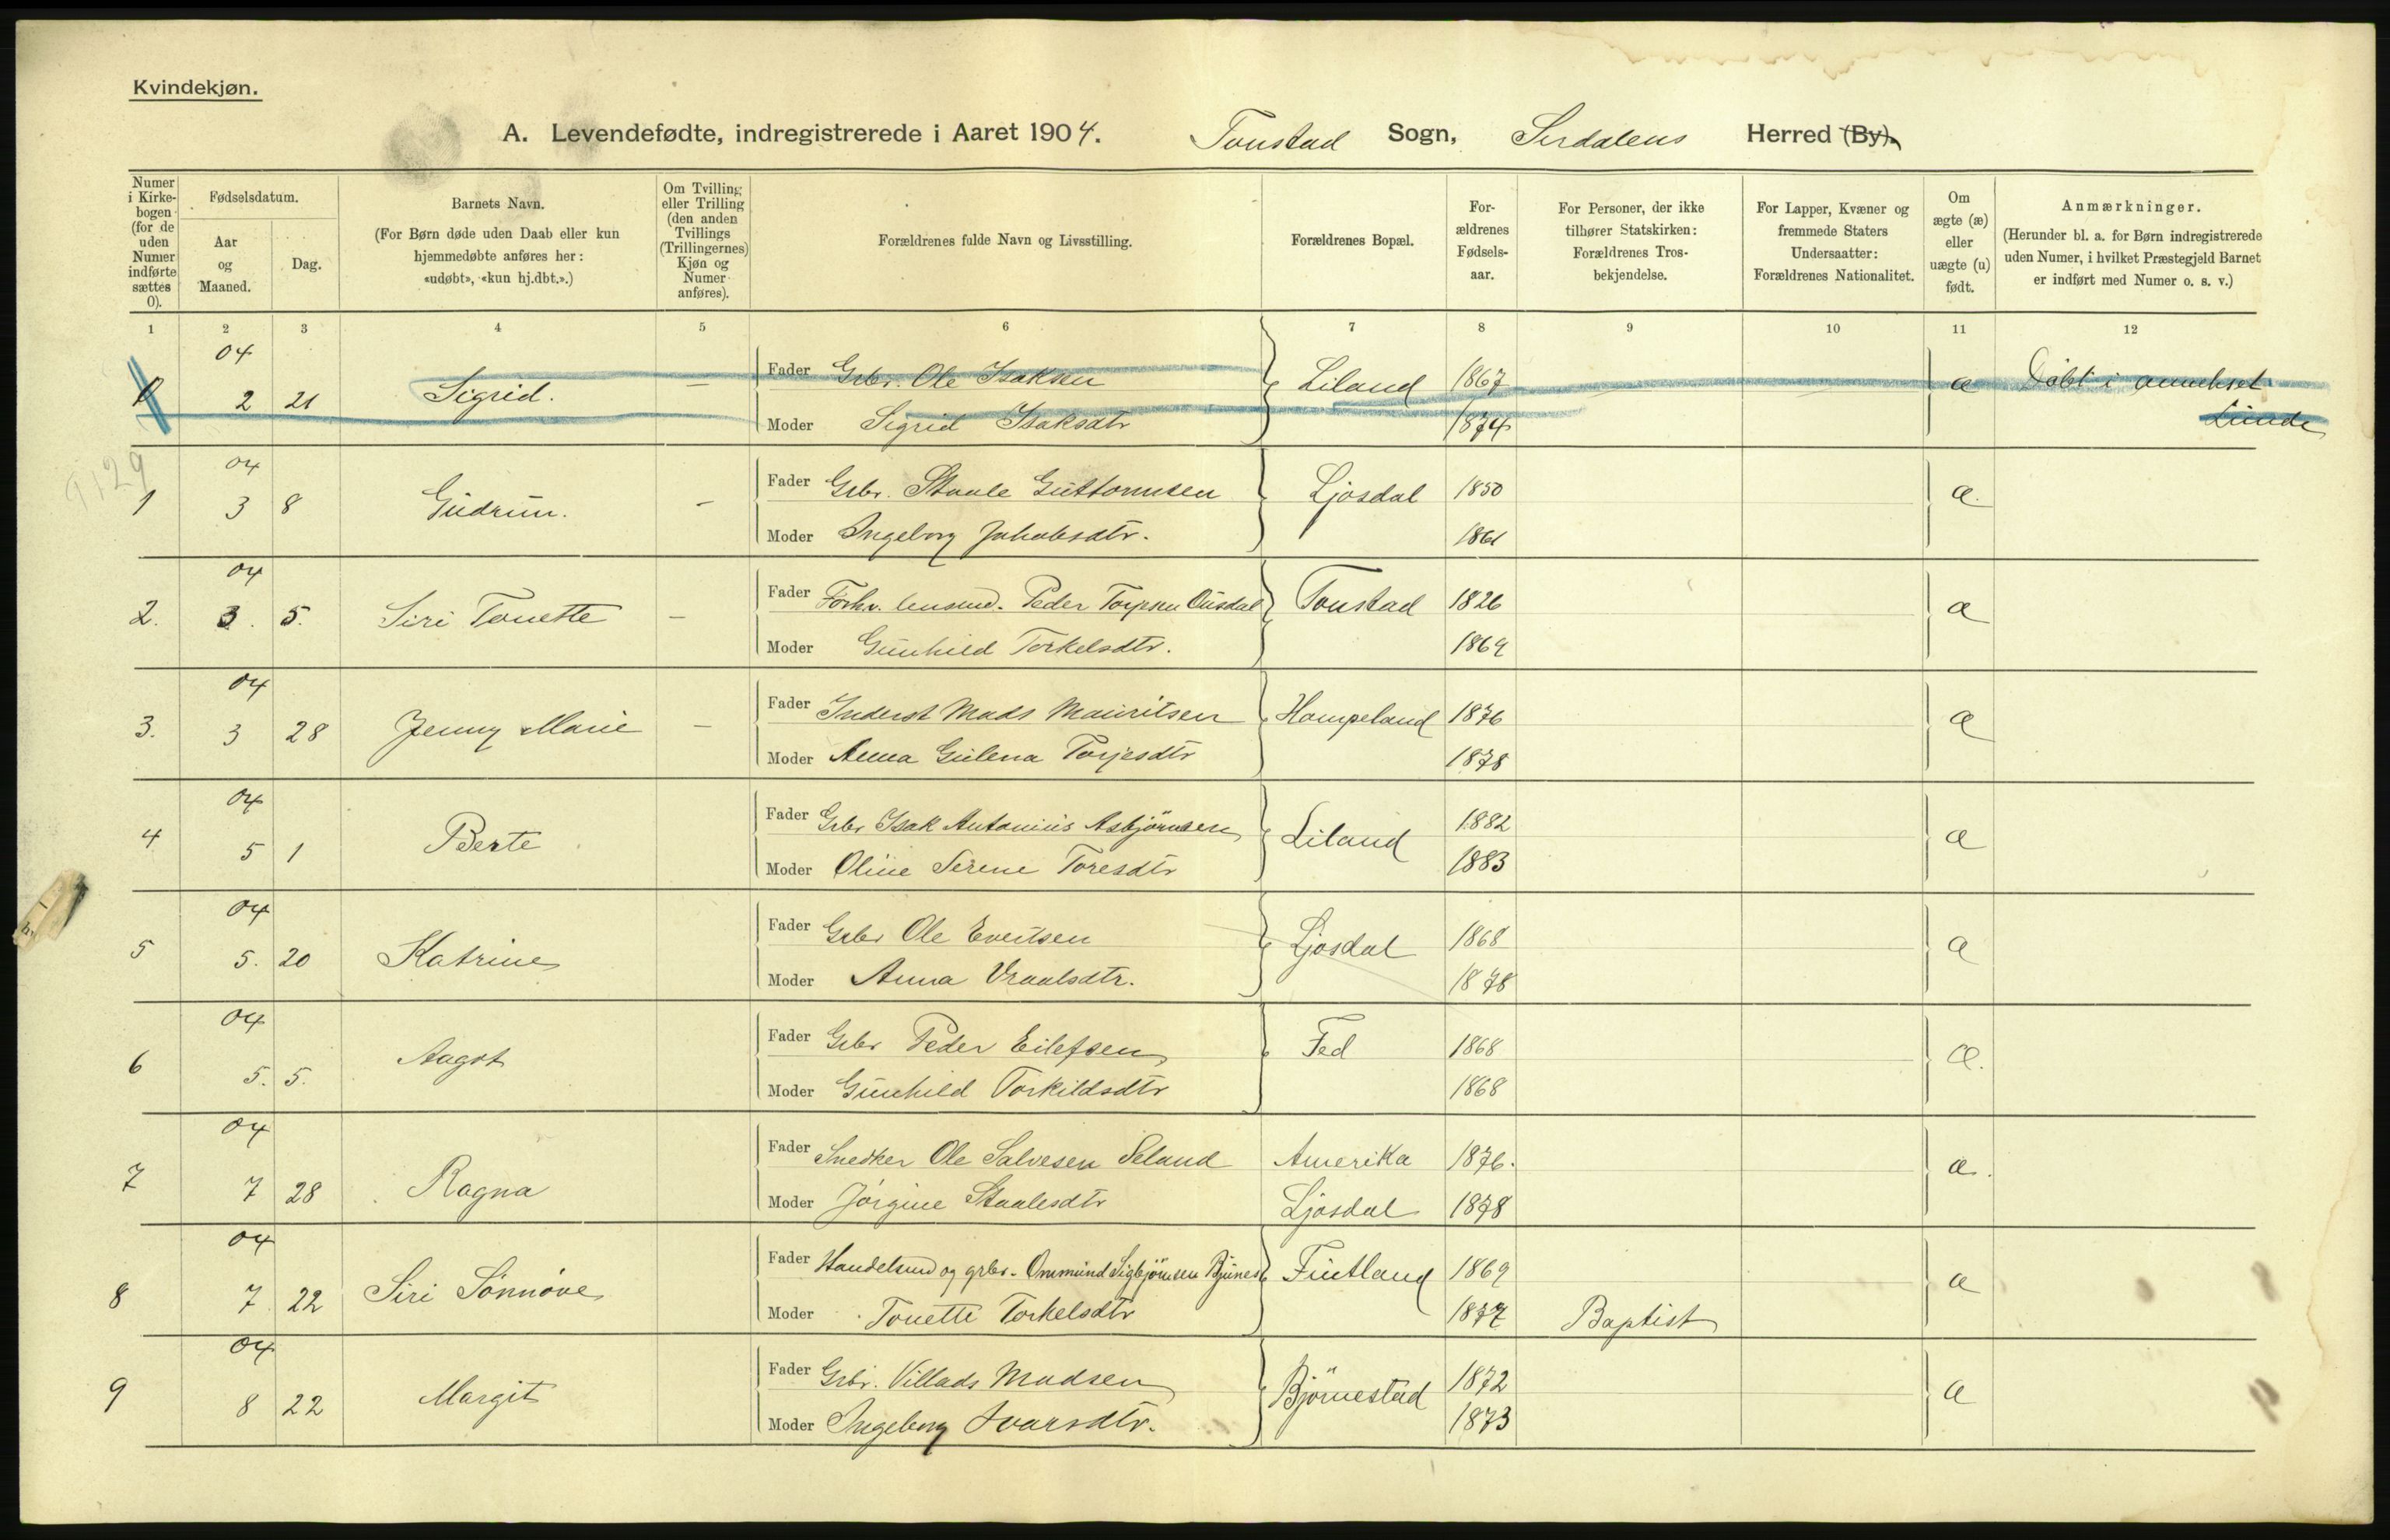 Kvindekjøn.
A. Levendefødte, indregistrerede i Aaret 1904. Tonstad Sogn, Sirdalens Herred (By).
Numer i Kirkebogen (for de uden Numer indførte sættes 0).
Fødselsdatum.
Aar og Maaned.
Dag.
Barnets Navn.
(For Børn døde uden Daab eller kun hjemmedøbte anføres her: «udøbt», «kun hj.dbt.».)
Om Tvilling eller Trilling (den anden Tvillings (Trillingernes) Kjøn og Numer anføres).
Forældrenes fulde Navn og Livsstilling.
Forældrenes Bopæl.
Forældrenes Fødselsaar.
For Personer, der ikke tilhører Statskirken: Forældrenes Trosbekjendelse.
For Lapper, Kvæner og fremmede Staters Undersaatter: Forældrenes Nationalitet.
Om ægte (æ) eller uægte (u) født.
Anmærkninger.
(Herunder bl. a. for Børn indregistrerede uden Numer, i hvilket Præstegjeld Barnet er indført med Numer o. s. v.)
1 2 3 4 5 6 7 8 9 10 11 12
04
0 2 21 Sigrid. — Fader Grbr. Ole Isaksen Liland 1867 æ Döbt i annekset
Moder Sigrid Isaksdtr 1874 Lunde
9129
04
1 3 8 Gudrun. - Fader Grbr. Staale Guttormsen Ljosdal 1850 æ.
Moder Ingeborg Jakobsdtr. 1861
04
2. 3. 5. Siri Tonette — Fader Forhv. lensmd. Peder Torjesen Ousdal Tonstad 1826 æ
Moder Gunhild Torkelsdtr. 1869
04
3. 3 28 Jenny Marie — Fader Inderst Mads Mauritsen Hompeland 1876 æ
Moder Anna Gulena Torjesdtr 1878
04
4 5 1 Berte Fader Grbr Isak Antonius Asbjörnsen Liland 1882 æ
Moder Oline Serine Toresdtr 1883
04
5 5. 20 Katrine Fader Grbr Ole Evertsen Ljosdal 1868 æ
Moder Anna Vraalsdtr. 1878
04
6 5. 5. Aagot Fader Grbr Peder Eilefsen Fed 1868 æ.
Moder Gunhild Torkildsdtr 1868
04
7 7 28 Ragna Fader Snedker Ole Salvesen Seland Amerika 1876. æ.
Moder Jörgine Staalesdtr Ljosdal 1878
04
8 7 22 Siri Sönnöve Fader Handelsmd og grbr. Ommund Sigbjörnsen Bjunes Fintland 1869 æ
Moder Tonette Torkelsdtr 1877 Baptist
04
9 8 22 Margit Fader Grbr. Villads Madsen Björnestad 1872 æ
Moder Ingeborg Ivarsdtr. 1873